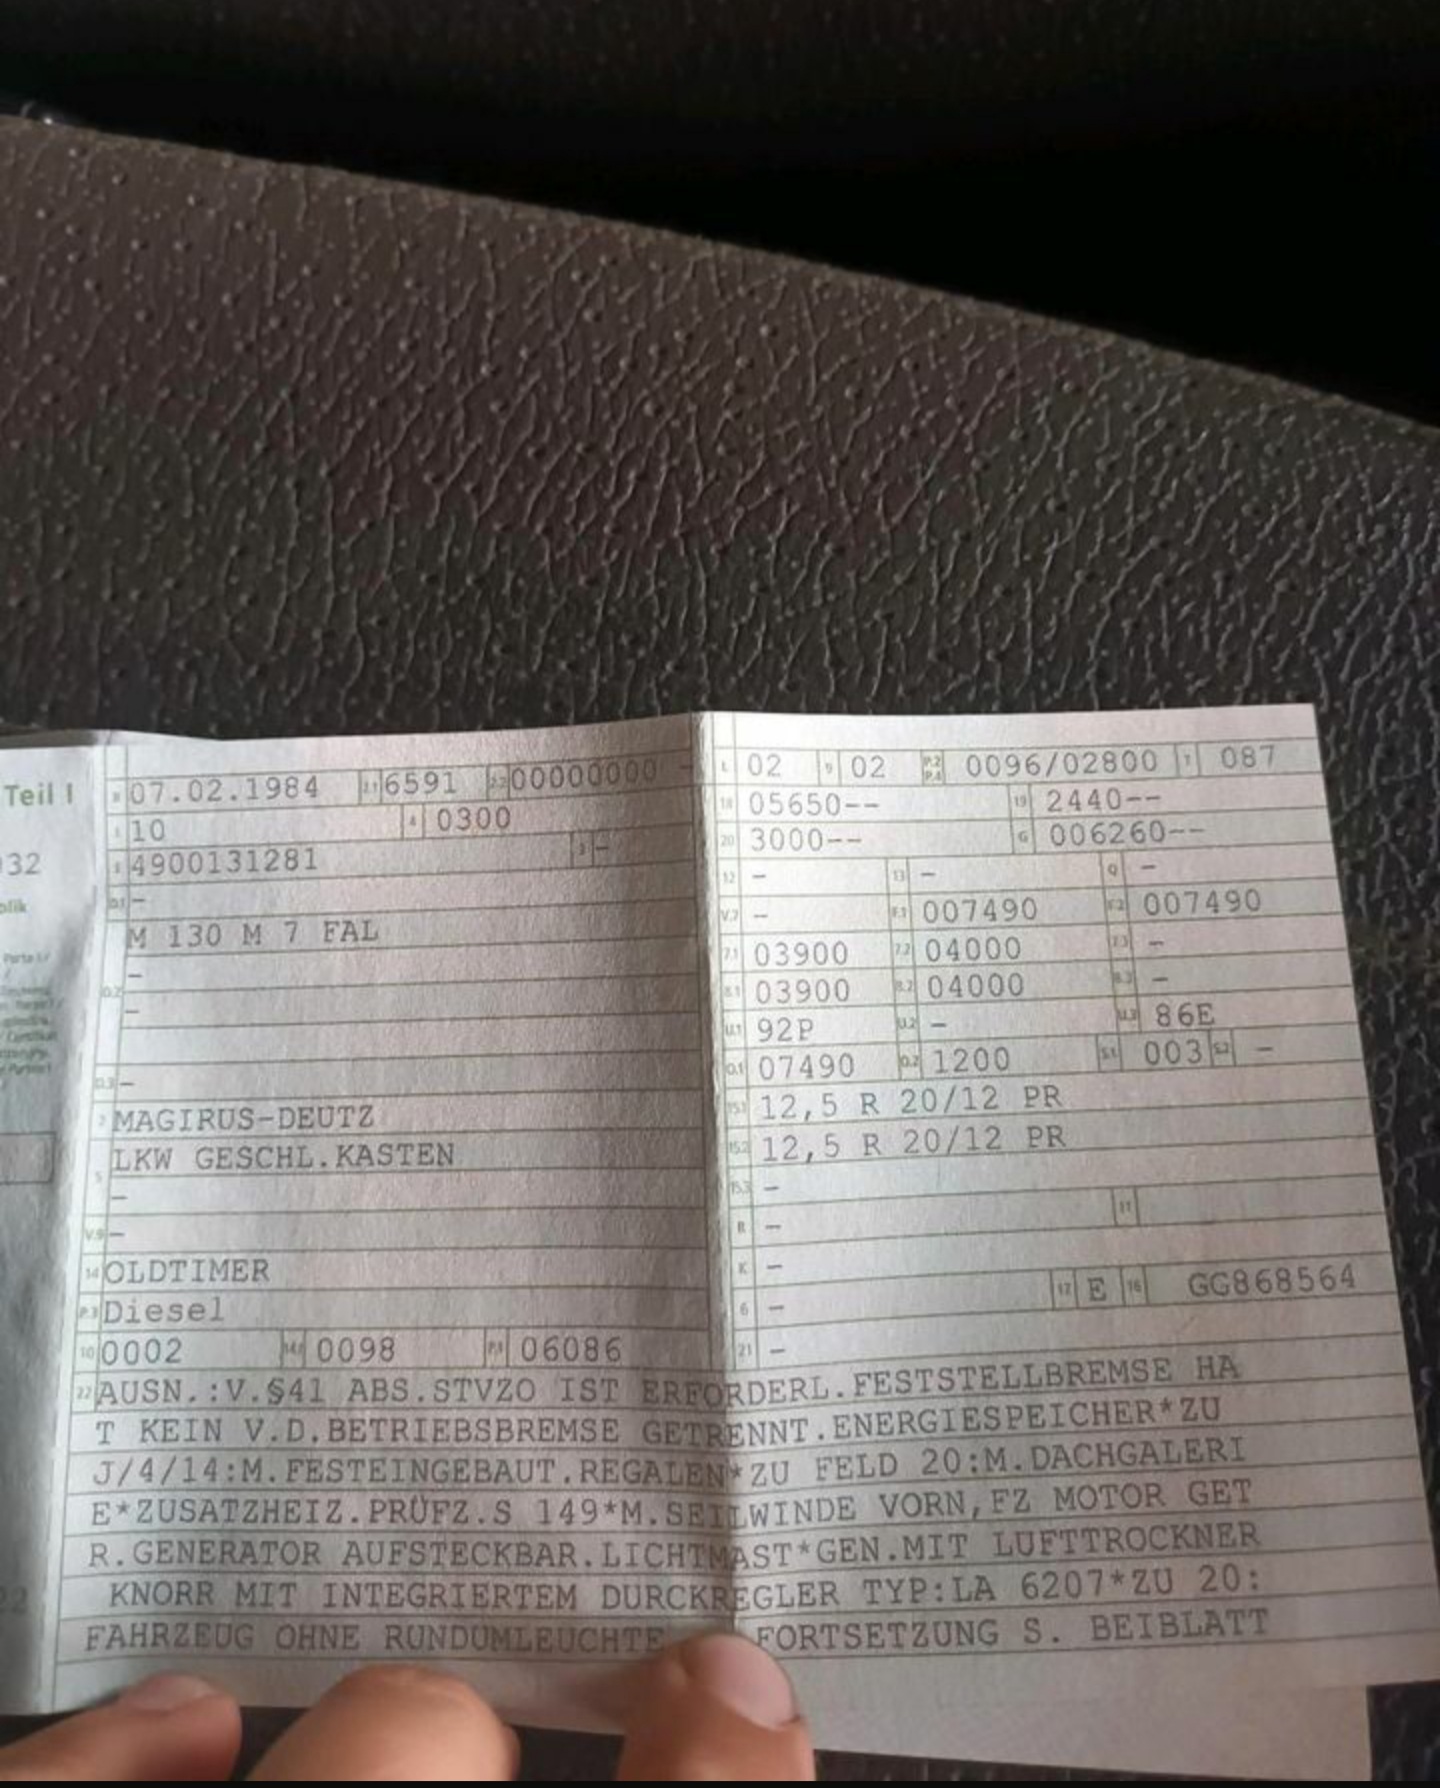 Teil I
32
07.02.1984 2.1 6591 2.2 00000000 -
10 4 0300
4900131281 3 -
D.1 -
M 130 M 7 FAL
-
D.2
-
D.3 -
2 MAGIRUS-DEUTZ
5 LKW GESCHL.KASTEN
-
V.9 -
14 OLDTIMER
P.3 Diesel
10 0002 14.1 0098 P.1 06086
L 02 9 02 P.2 P.4 0096/02800 T 087
18 05650-- 19 2440--
20 3000-- G 006260--
12 - 13 - Q -
V.7 - F.1 007490 F.2 007490
7.1 03900 7.2 04000 7.3 -
8.1 03900 8.2 04000 8.3 -
U.1 92P U.2 - U.3 86E
O.1 07490 O.2 1200 S.1 003 S.2 -
15.1 12,5 R 20/12 PR
15.2 12,5 R 20/12 PR
15.3 -
R - 11
K -
6 - 17 E 16 GG868564
21 -
22 AUSN.:V.§41 ABS.STVZO IST ERFORDERL.FESTSTELLBREMSE HA
T KEIN V.D.BETRIEBSBREMSE GETRENNT.ENERGIESPEICHER*ZU
J/4/14:M.FESTEINGEBAUT.REGALEN*ZU FELD 20:M.DACHGALERI
E*ZUSATZHEIZ.PRÜFZ.S 149*M.SEILWINDE VORN,FZ MOTOR GET
R.GENERATOR AUFSTECKBAR.LICHTMAST*GEN.MIT LUFTTROCKNER
KNORR MIT INTEGRIERTEM DURCKREGLER TYP:LA 6207*ZU 20:
FAHRZEUG OHNE RUNDUMLEUCHTE FORTSETZUNG S. BEIBLATT